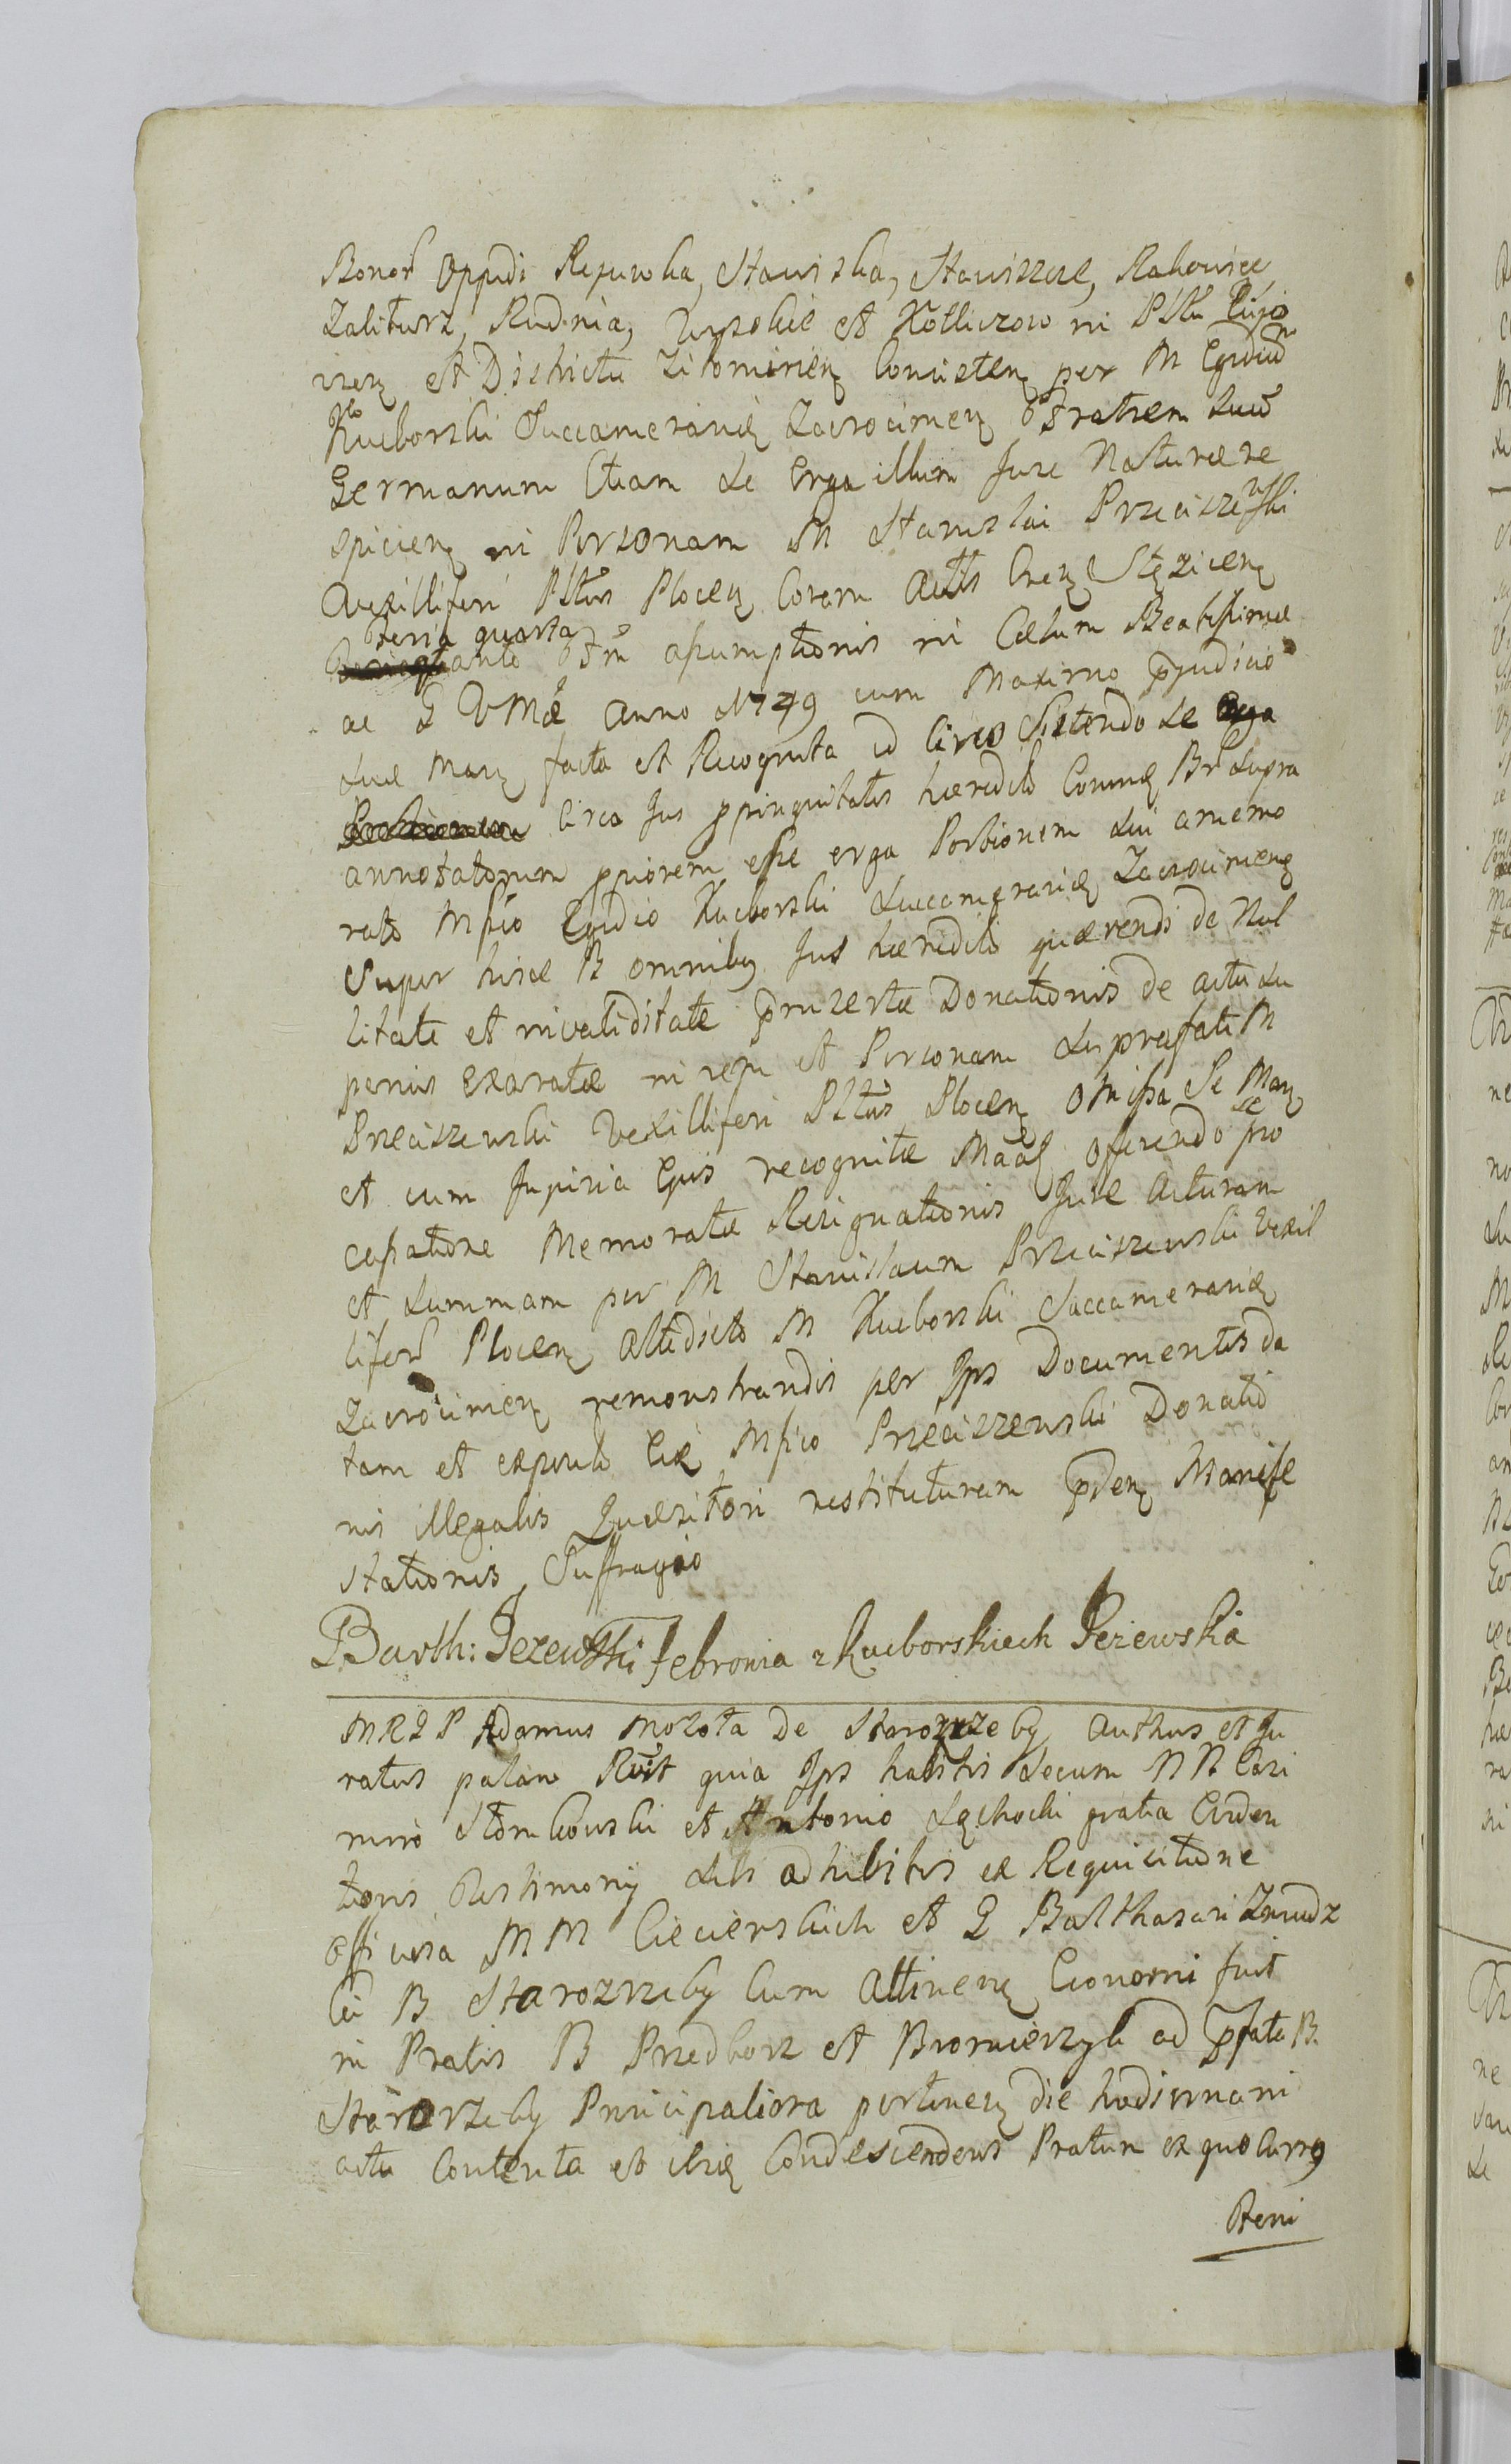 Bonor Oppidi Rejuwka, Stawiska, Stawiszcze, Rakowice
Zaliturz, Rudnia, Wysokie et Kotliczow in Pltu Kijo
vien et Districtu Zitomirien Consisten per M Egidiu
Kucborski Succamerarid Zacrocimen Fratrem suu
Germanum Etiam se Erga illum Jure Naturae re
spicien in Personam M Stanislai Przeciszewski
Vexilliferi Pltus Plocen Coram Actis Cren Stęzicen
Feria quarta ante Fm assumptionis in Caelum Beatissimae
ac G V Mae Anno 1749 cum Maximo pjudicio
suae Man facta et Recognita id Circo Sistendo se
Circa Jus ppinquitatis haeredit Comun Br supra
annotatorum ppiorem esse erga Portionem sui a memo
rato Mfico Egidio Kucborski Succamerarid Zacrocimen
Super hisce B omnibg Jus haeredit quaerendi de Nul
litate et invaliditate pinsertae Donationis de actu su
perius exaratae in rem et Personam suprafati M
Przeciszewski Vexilliferi Pltus Plocen Omissa Se Man
et cum Injuria Ejus recognitae Maad offerendo se pro
cessatione Memoratae Resignationis Jure Acturam
et summam per M Stanislaum Przeciszewski Vexil
liferu Plocen altedicto M Kucborski Succamerarid
Zacrocimen remonstrandis per Jps Documentis da
tam et exposit Mfico Przeciszewski Donatio
nis illegalis Quaesitori restituturam pden Manife
stationis Suffragio
Barth: Jezewski Febronia z Kucborskiech Jezewska
M R G P Adamus Molota De Starozrzeby Authus et Ju
ratus palam Rvit quia Jps habitis secum NN Casi
miro Słomkowski et Antonio Lęchocki gratia Eviden
tioris Testimony sibi adhibitis ex Requisitione
officiosa MM Ciecierskich et G Balthasari Zmudz
ki B Starozrzeby Cum attinen Economi fuit
in Pratis B Przedborz et Bromierzyk ad pfata B.
Starozrzeby Principaliora pertinen die hodierna in
actu Contenta et ibid Condescendens Pratum ex quo Currg